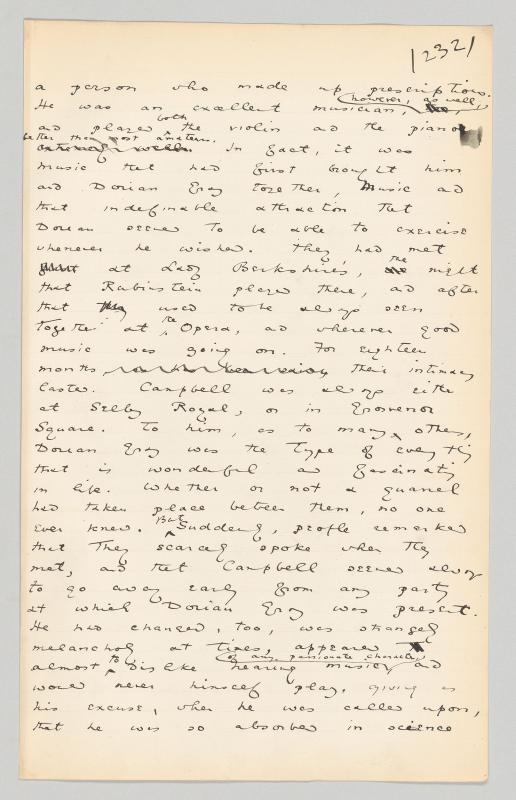 232
a person who made up prescriptions.
He was an excellent musician, however, as well,
and played both the violin and the piano
better than most amateurs. In fact, it was
music that had first brought him
and Dorian Gray together, Music and
that indefinable attraction that
Dorian seemed to be able to exercise
whenever he wished. They had met
at Lady Berkshire's, the night
that Rubinstein played there, and after
that used to be always seen
together at the Opera, and wherever good
music was going on. For eighteen
months their intimacy
lasted. Campbell was always either
at Selby Royal, or in Grosvenor
Square. To him, as to many others,
Dorian Gray was the type of everything
that is wonderful and fascinating
in life. Whether or not a quarrel
had taken place between them, no one
ever knew. But suddenly, people remarked
that they scarcely spoke when they
met, and that Campbell seemed always
to go away early from any party
at which Dorian Gray was present.
He had changed, too, was strangely
melancholy at times, appeared
almost to dislike hearing music of any passionate character, and
would never himself play, giving as
his excuse, when he was called upon,
that he was so absorbed in science